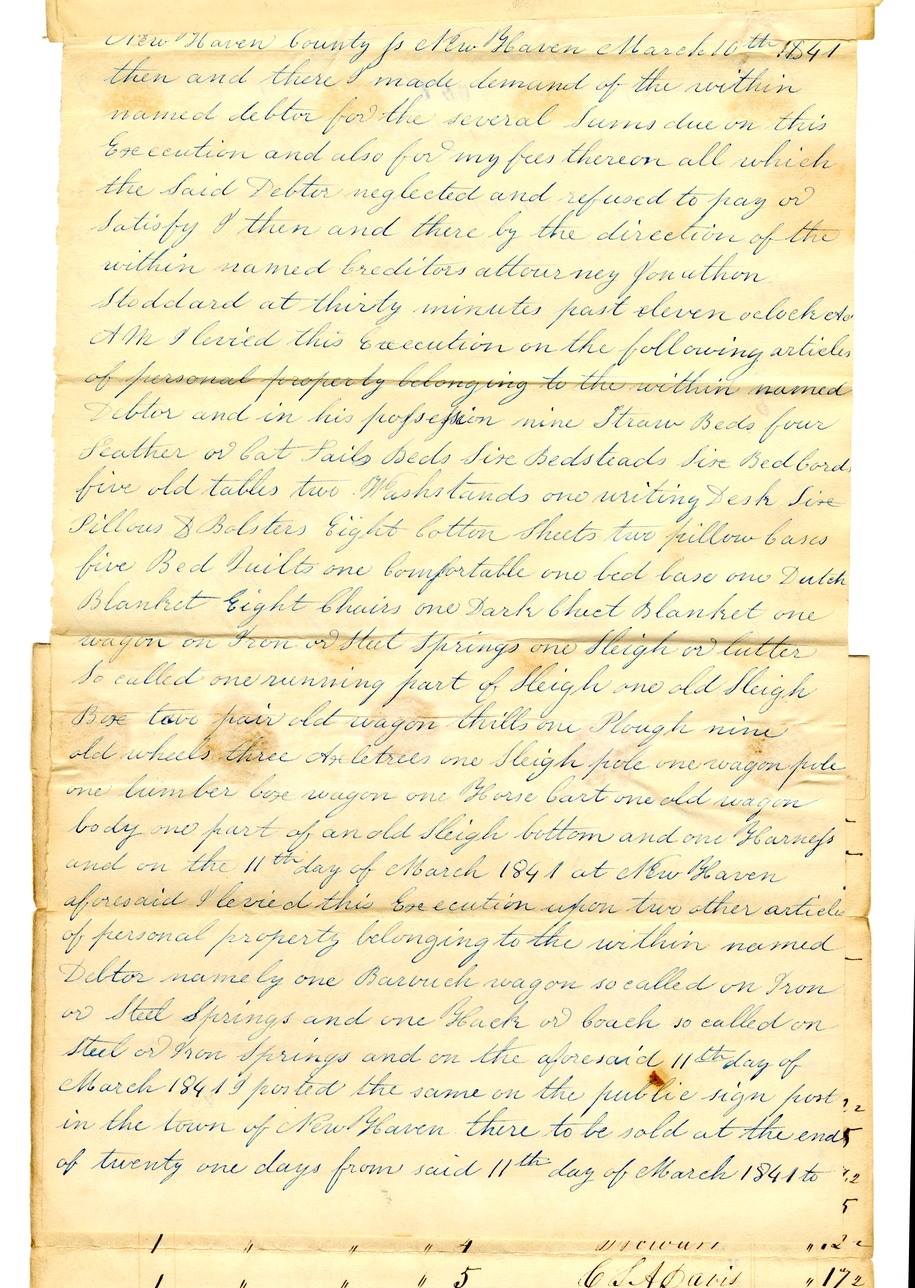 New Haven County ss New Haven March 10th 1841
then and there I made demand of the within
named debtor for the several Sums due on this
Execution and also for my fees thereon all which
the Said Debtor neglected and refused to pay or
Satisfy I then and there by the direction of the
within named Creditors attourney Jonathon
Stoddard at thirty minutes past eleven oclock
AM I levied this Execution on the following articles
of personal property belonging to the within named
Debtor and in his possession nine Straw Beds four
Feather or Cat Tails Beds Six Bedsteads Six Bed Cords
five old tables two Washstands one writing Desk Six
Pillows & Bolsters Eight Cotton Sheets two pillow Cases
five Bed Quilts one Comfortable one bed case one Dutch
Blanket Eight Chairs one Dark Chect Blanket one
wagon on Iron or Steel Springs one Sleigh or Cutter
So called one running part of Sleigh one old Sleigh
Box two pair old wagon thills one Plough nine
old wheels three Axletrees one Sleigh pole one wagon pole
one lumber box wagon one Horse Cart one old wagon
body one part of an old Sleigh bottom and one Harness
and on the 11th day of March 1841 at New Haven
aforesaid I levied this Execution upon two other articles
of personal property belonging to the within named
Debtor namely one Barouch wagon so called on Iron
or Steel Springs and one Hack or Coach so called on
Steel or Iron Springs and on the aforesaid 11th day of
March 1841 I posted the same on the public sign post
in the town of New Haven there to be sold at the end
of twenty one days from said 11th day of March 1841 to
5
5
1 " " " 4
1 " " " 5 C S A Davis " 172